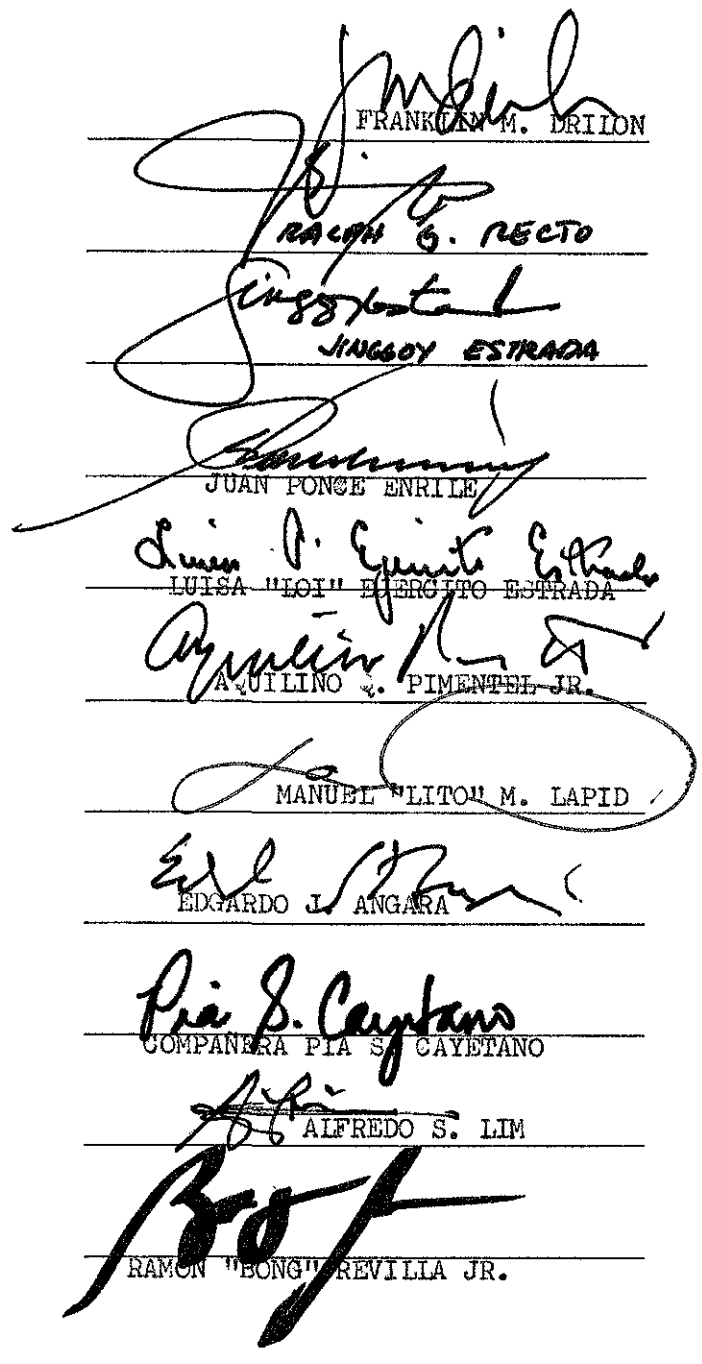 FRANKLIN M. DRILON
RALPH G. RECTO
Jinggoy Estrada
JINGGOY ESTRADA
JUAN PONCE ENRILE
Luisa P. Ejercito Estrada
LUISA "LOI" EJERCITO ESTRADA
AQUILINO Q. PIMENTEL JR.
MANUEL "LITO" M. LAPID
EDGARDO J. ANGARA
Pia S. Cayetano
COMPAÑERA PIA S. CAYETANO
ALFREDO S. LIM
Bong
RAMON "BONG" REVILLA JR.